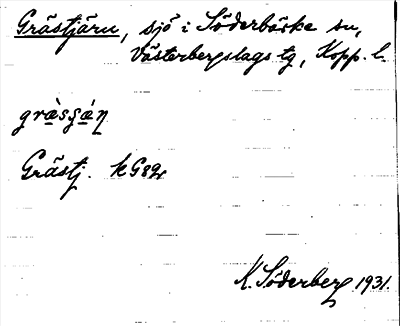 Grästjärn, sjö i Söderbärke sn,
Västerbergslags tg, Kopp. l.
græ̀sʂǽn
Grästj. kG82
K. Söderberg 1931.